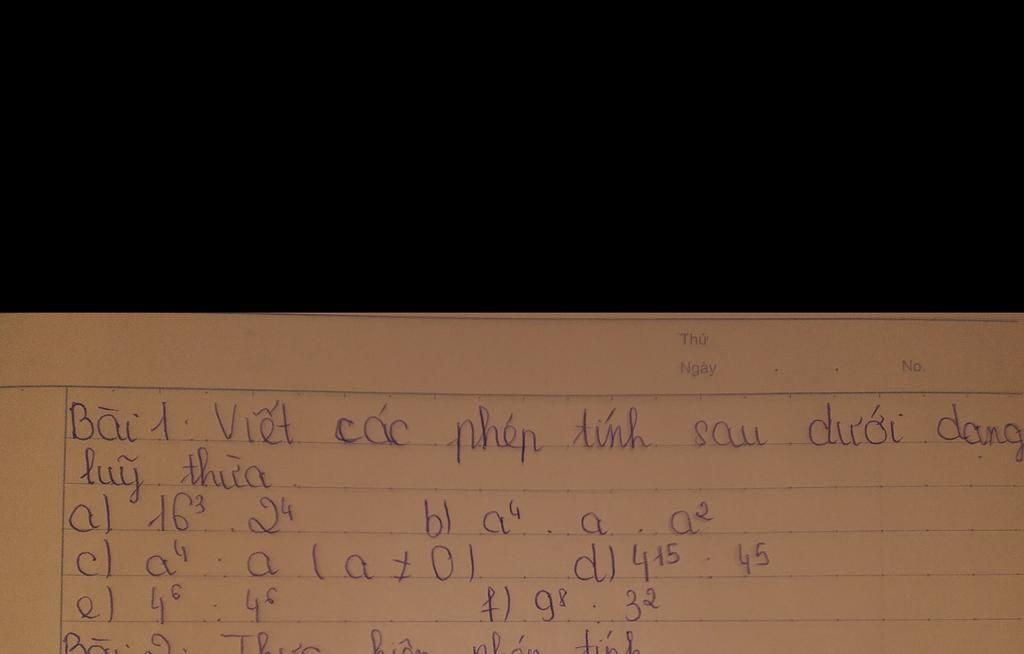 Thứ
Ngày . . No.
Bài 1. Viết các phép tính sau dưới dạng
luỹ thừa
a) 16³ . 2⁴ b) a⁴ . a . a²
c) a⁴ : a ( a ≠ 0 ) d) 4¹⁵ : 4⁵
e) 4⁶ : 4⁶ f) 9⁸ : 3²
Bài 2: Thực hiện phép tính